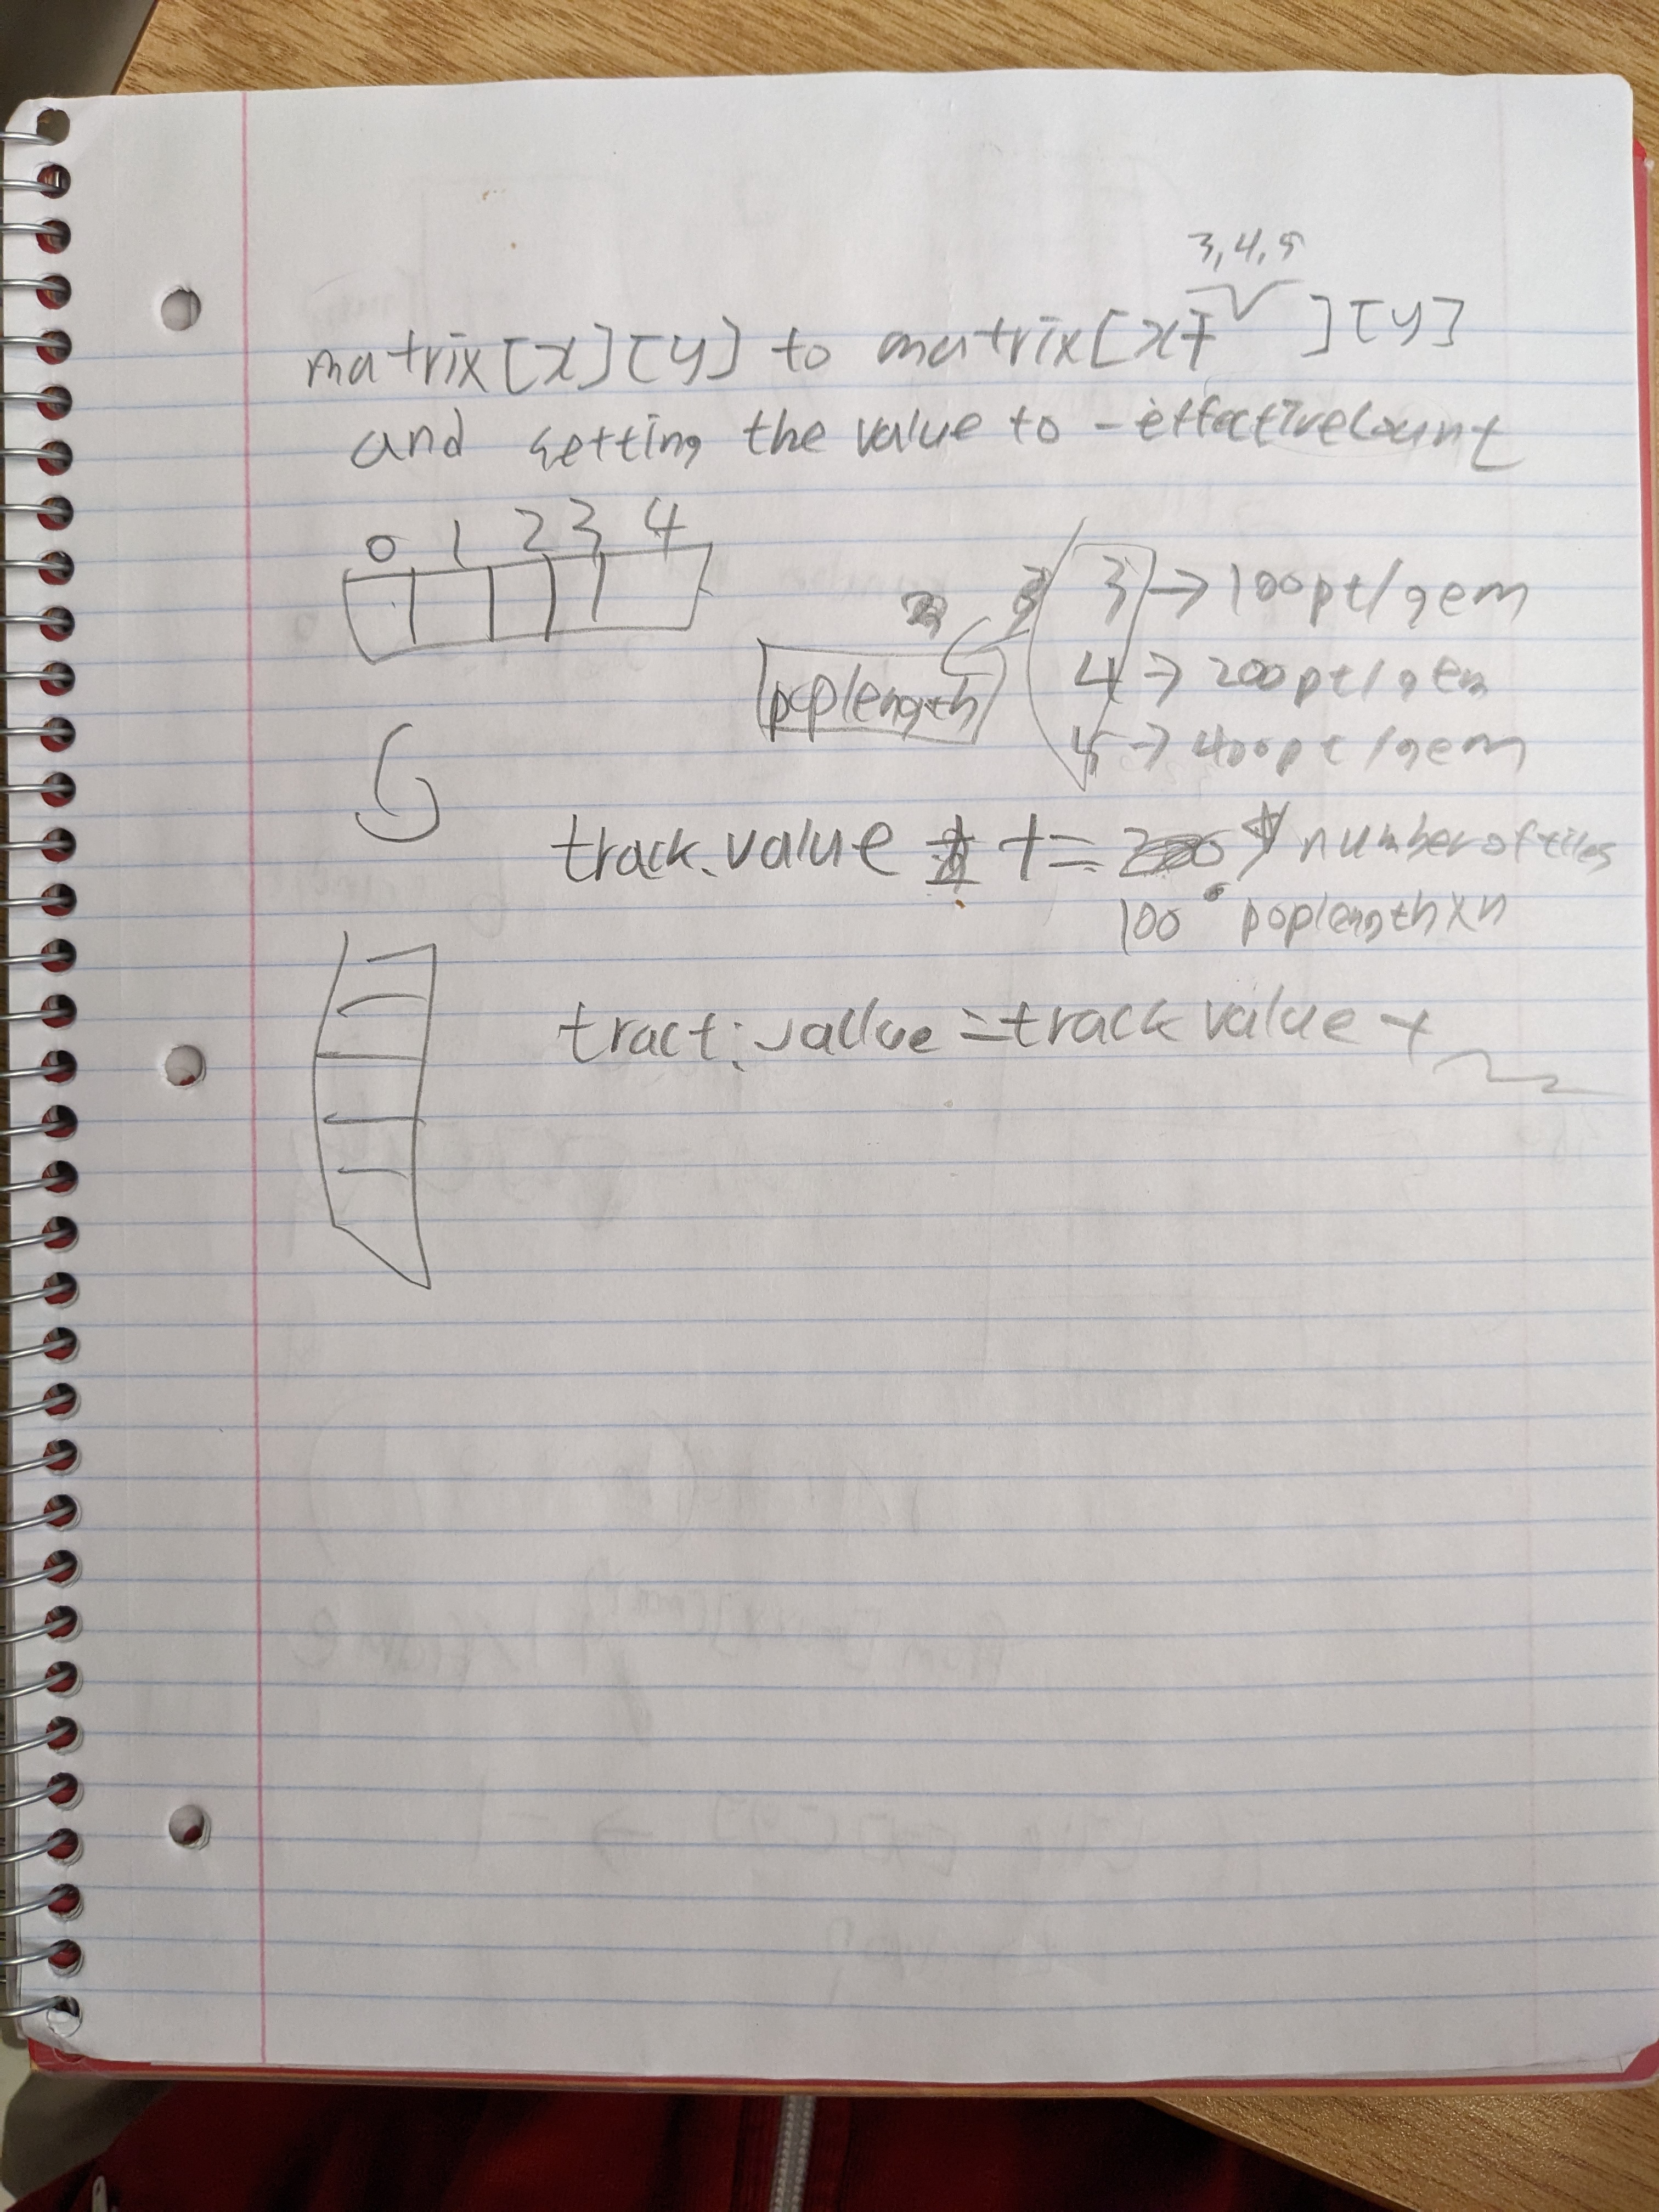 3, 4, 5
matrix[x][y] to matrix[x+ ][y]
and setting the value to -effectivecount
0 1 2 3 4
3 → 100pt/gem
4 → 200pt/gem
poplength
5 → 400pt/gem
track.value += number of tiles
100 • poplength x n
tract.value = track value +